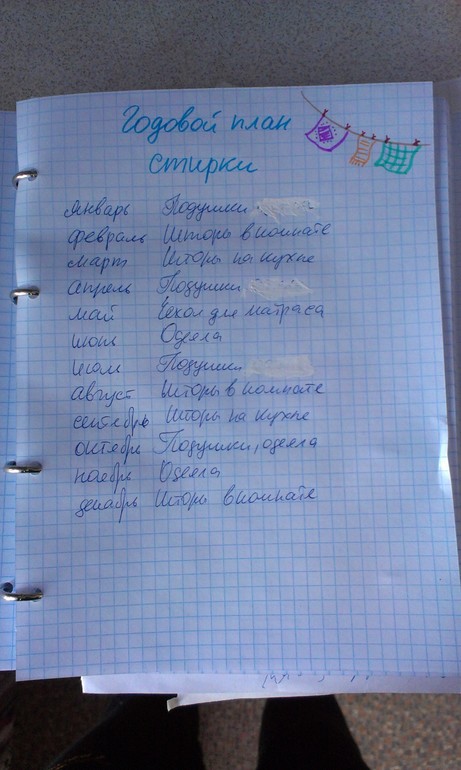 Годовой план
стирки
январь Подушки
февраль Шторы в комнате
март Шторы на кухне
апрель Подушки
май Чехол для матраса
июнь Одеяла
июль Подушки
август Шторы в комнате
сентябрь Шторы на кухне
октябрь Подушки, одеяла
ноябрь Одеяла
декабрь Шторы в комнате